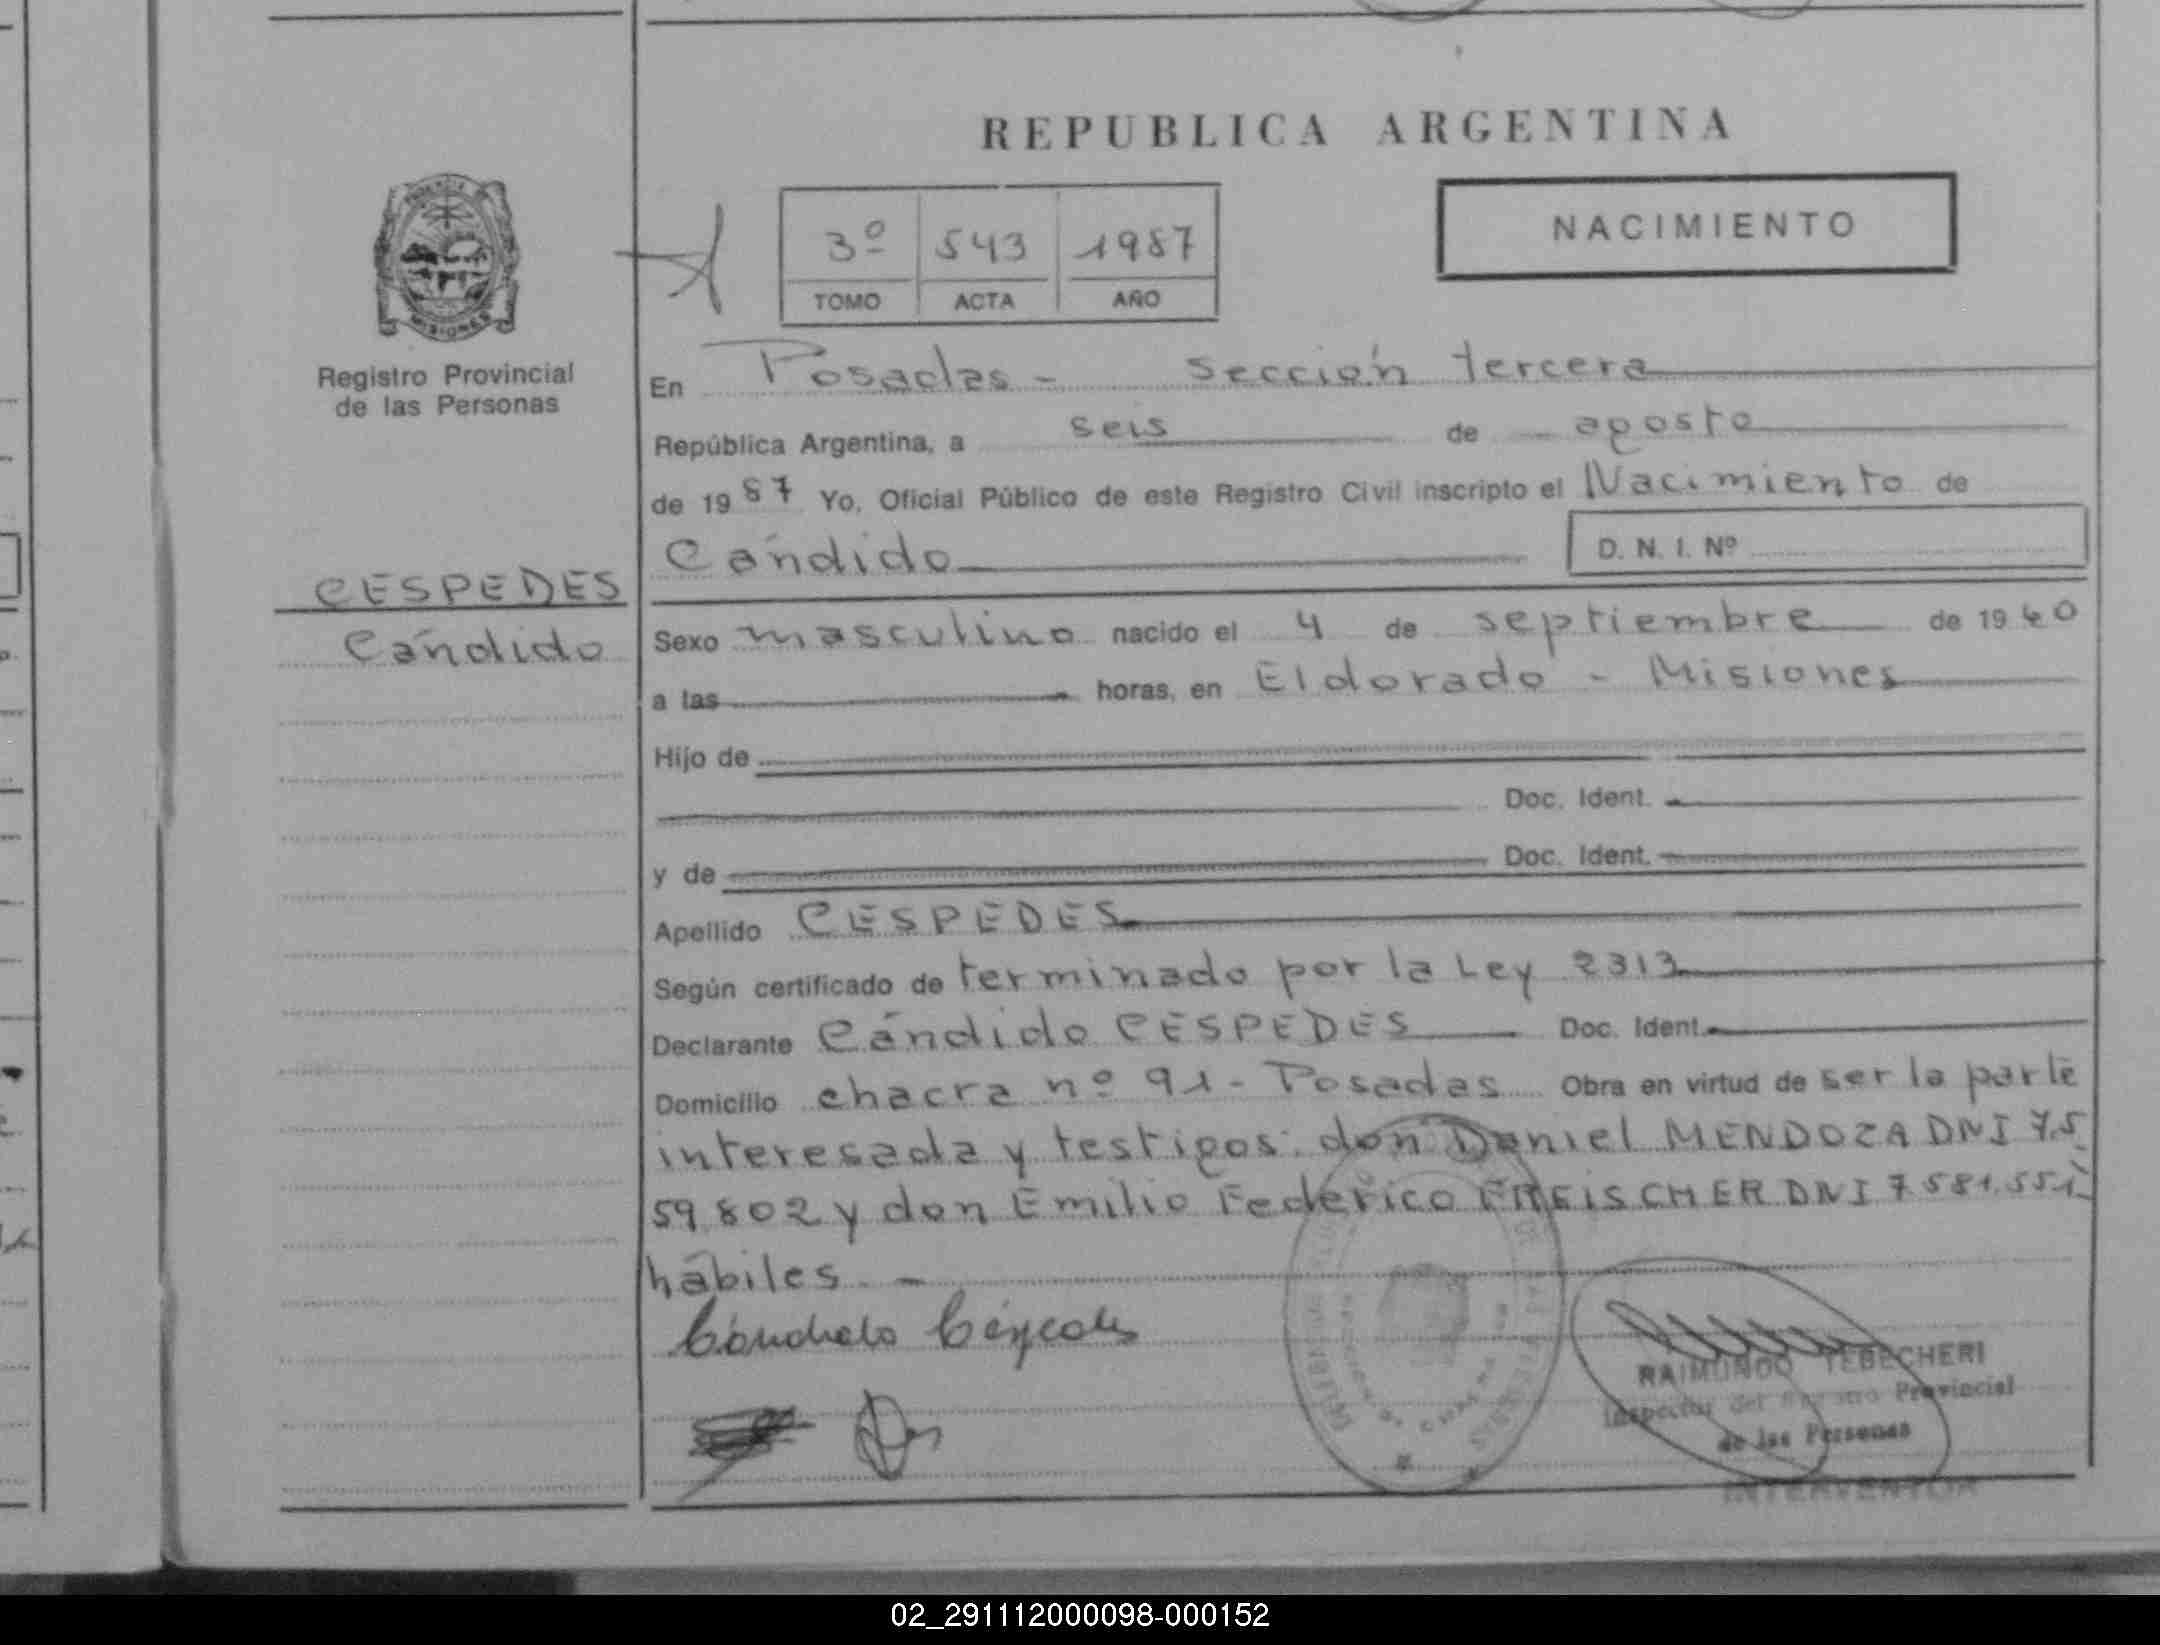 REPUBLICA ARGENTINA
NACIMIENTO
3º 543 1987
TOMO ACTA AÑO
MISIONES
Registro Provincial
de las Personas
CESPEDES
Cándido
En Posadas - Sección tercera
República Argentina, a seis de agosto
de 1987 Yo, Oficial Público de este Registro Civil inscripto el Nacimiento de
Cándido D. N. I. Nº
Sexo masculino nacido el 4 de septiembre de 1940
a las horas, en Eldorado - Misiones
Hijo de
Doc. Ident.
y de Doc. Ident.
Apellido CESPEDES
Según certificado de terminado por la Ley 2313
Declarante Cándido CESPEDES Doc. Ident.
Domicilio chacra nº 91 - Posadas Obra en virtud de ser la parte
interesada y testigos: don Daniel MENDOZA DNI 7.5
59.802 y don Emilio Federico FREISCHER DNI 7.581.551
hábiles. -
Cándido Céspedes
RAIMUNDO TEBECHERI
Inspector del Registro Provincial
de las Personas
INTERVENTOR
02_291112000098-000152